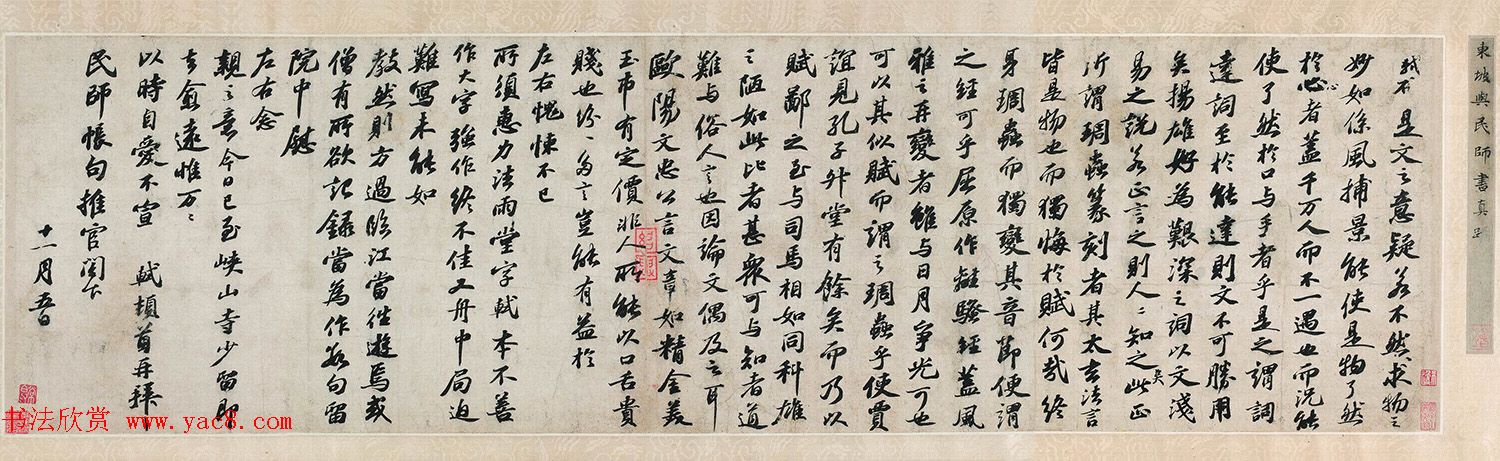 東坡與民師書真跡
是文之意疑若不然求物之
妙如係風捕景能使是物了然
於心者蓋千万人而不一遇也而況能
使了然於口与手者乎是之謂詞
達詞至於能達則文不可勝用
矣揚雄好為艱深之詞以文淺
易之說若正言之則人〻知之矣此正
所謂琱蟲篆刻者其太玄法言
皆是物也而獨悔於賦何哉終
身琱蟲而獨變其音節便謂
之經可乎屈原作離騷經蓋風
雅之再變者雖与日月爭光可也
可以其似賦而謂之琱蟲乎使賈
誼見孔子升堂有餘矣而乃以
賦鄙之至与司馬相如同科雄
之陋如此比者甚眾可与知者道
難与俗人言也因論文偶及之耳
歐陽文忠公言文章如精金美
玉市有定價非人所能以口舌貴
賤也紛〻多言豈能有益於
左右愧悚不已
所須惠力法雨堂字軾本不善
作大字強作終不佳又舟中局迫
難寫未能如
教然則方過臨江當往遊焉或
僧有所欲記錄當為作數句留
院中慰
左右念
親之意今日已至峽山寺少留即
去愈遠惟万〻
以時自愛不宣 軾頓首再拜
民師帳句推官閣下
十一月五日
书法欣赏 www.yac8.com